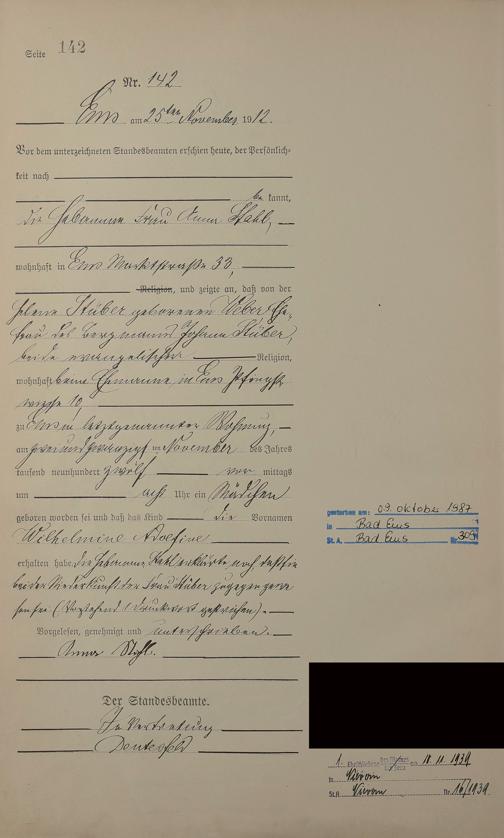 Seite 142
Nr. 142
Ems am 25ten November 1912.
Vor dem unterzeichneten Standesbeamten erschien heute, der Persönlich-
keit nach
be kannt,
die Hebamme Frau Anna Stahl,
wohnhaft in Ems Marktstraße 33,
Religion, und zeigte an, daß von der
Helene Stüber geborenen Weber Ehe-
frau des Bergmanns Johann Stüber,
beide evangelischer Religion,
wohnhaft beim Ehemanne in Ems
10,
zu Ems in letztgenannter Wohnung,
am zweiundzwanzigsten November des Jahres
tausend neunhundert zwölf vor mittags
um acht Uhr ein Mädchen
geboren worden sei und daß das Kind die Vornamen
Wilhelmine
erhalten habe. Die Hebamme Stahl erklärte noch daß sie
bei der Niederkunft der Frau Stüber zugegen gewe
sen sei (Vorstehend 1 Druckwort gestrichen).
Vorgelesen, genehmigt und unterschrieben.
Anna Stahl.
Der Standesbeamte.
In Vertretung
gestorben am: 09. Oktober 1987
in Bad Ems
St. A. Bad Ems Nr.
1. 18.11.1939
in
St.A. Nr. 16/1939